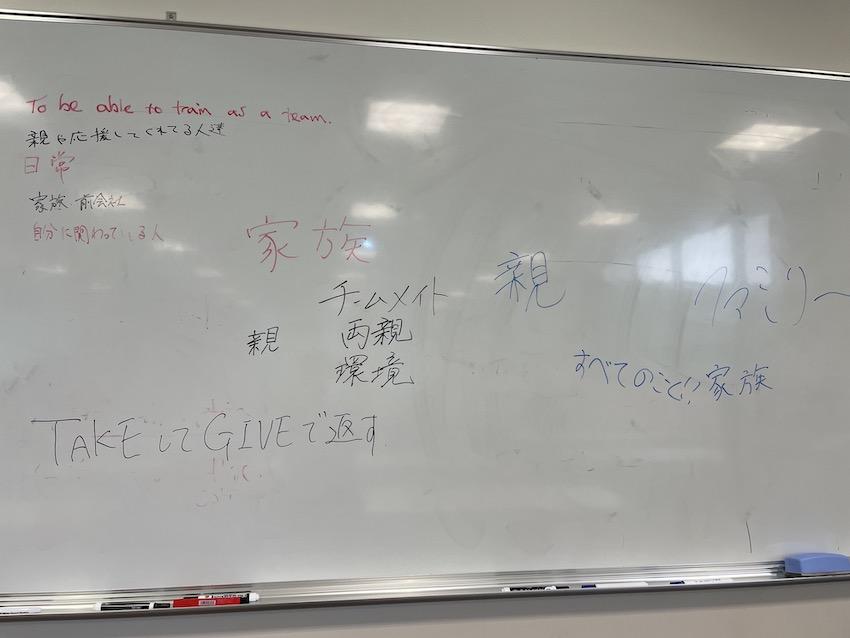 To be able to train as a team.
親や応援してくれてる人達
日常
家族・前会社
自分に関わっている人
家族
チームメイト
親 両親
環境
TAKEしてGIVEで返す
親
ファミリー
すべてのこと!! 家族